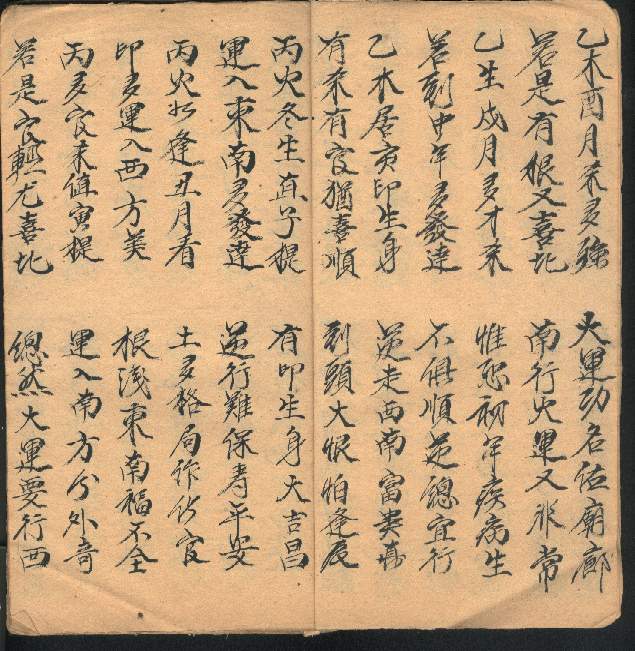 乙木酉月杀多強 火運功名佐廟廊
若是有根又喜北 南行火運又非常
乙生戌月多才杀 惟恐初年疾病生
若到中年多發達 不俱順逆總宜行
乙木居寅印生身 逆走西南富貴真
有杀有官猶喜順 到頭大恨怕逢辰
丙火冬生直子提 有印生身大吉昌
運入東南多發達 逆行難保寿平安
丙火如逢丑月看 土多格局作伤官
印多運入西方美 根浅東南福不全
丙多官杀值寅提 運入南方分外奇
若是官輕尤喜北 總然大運要行西